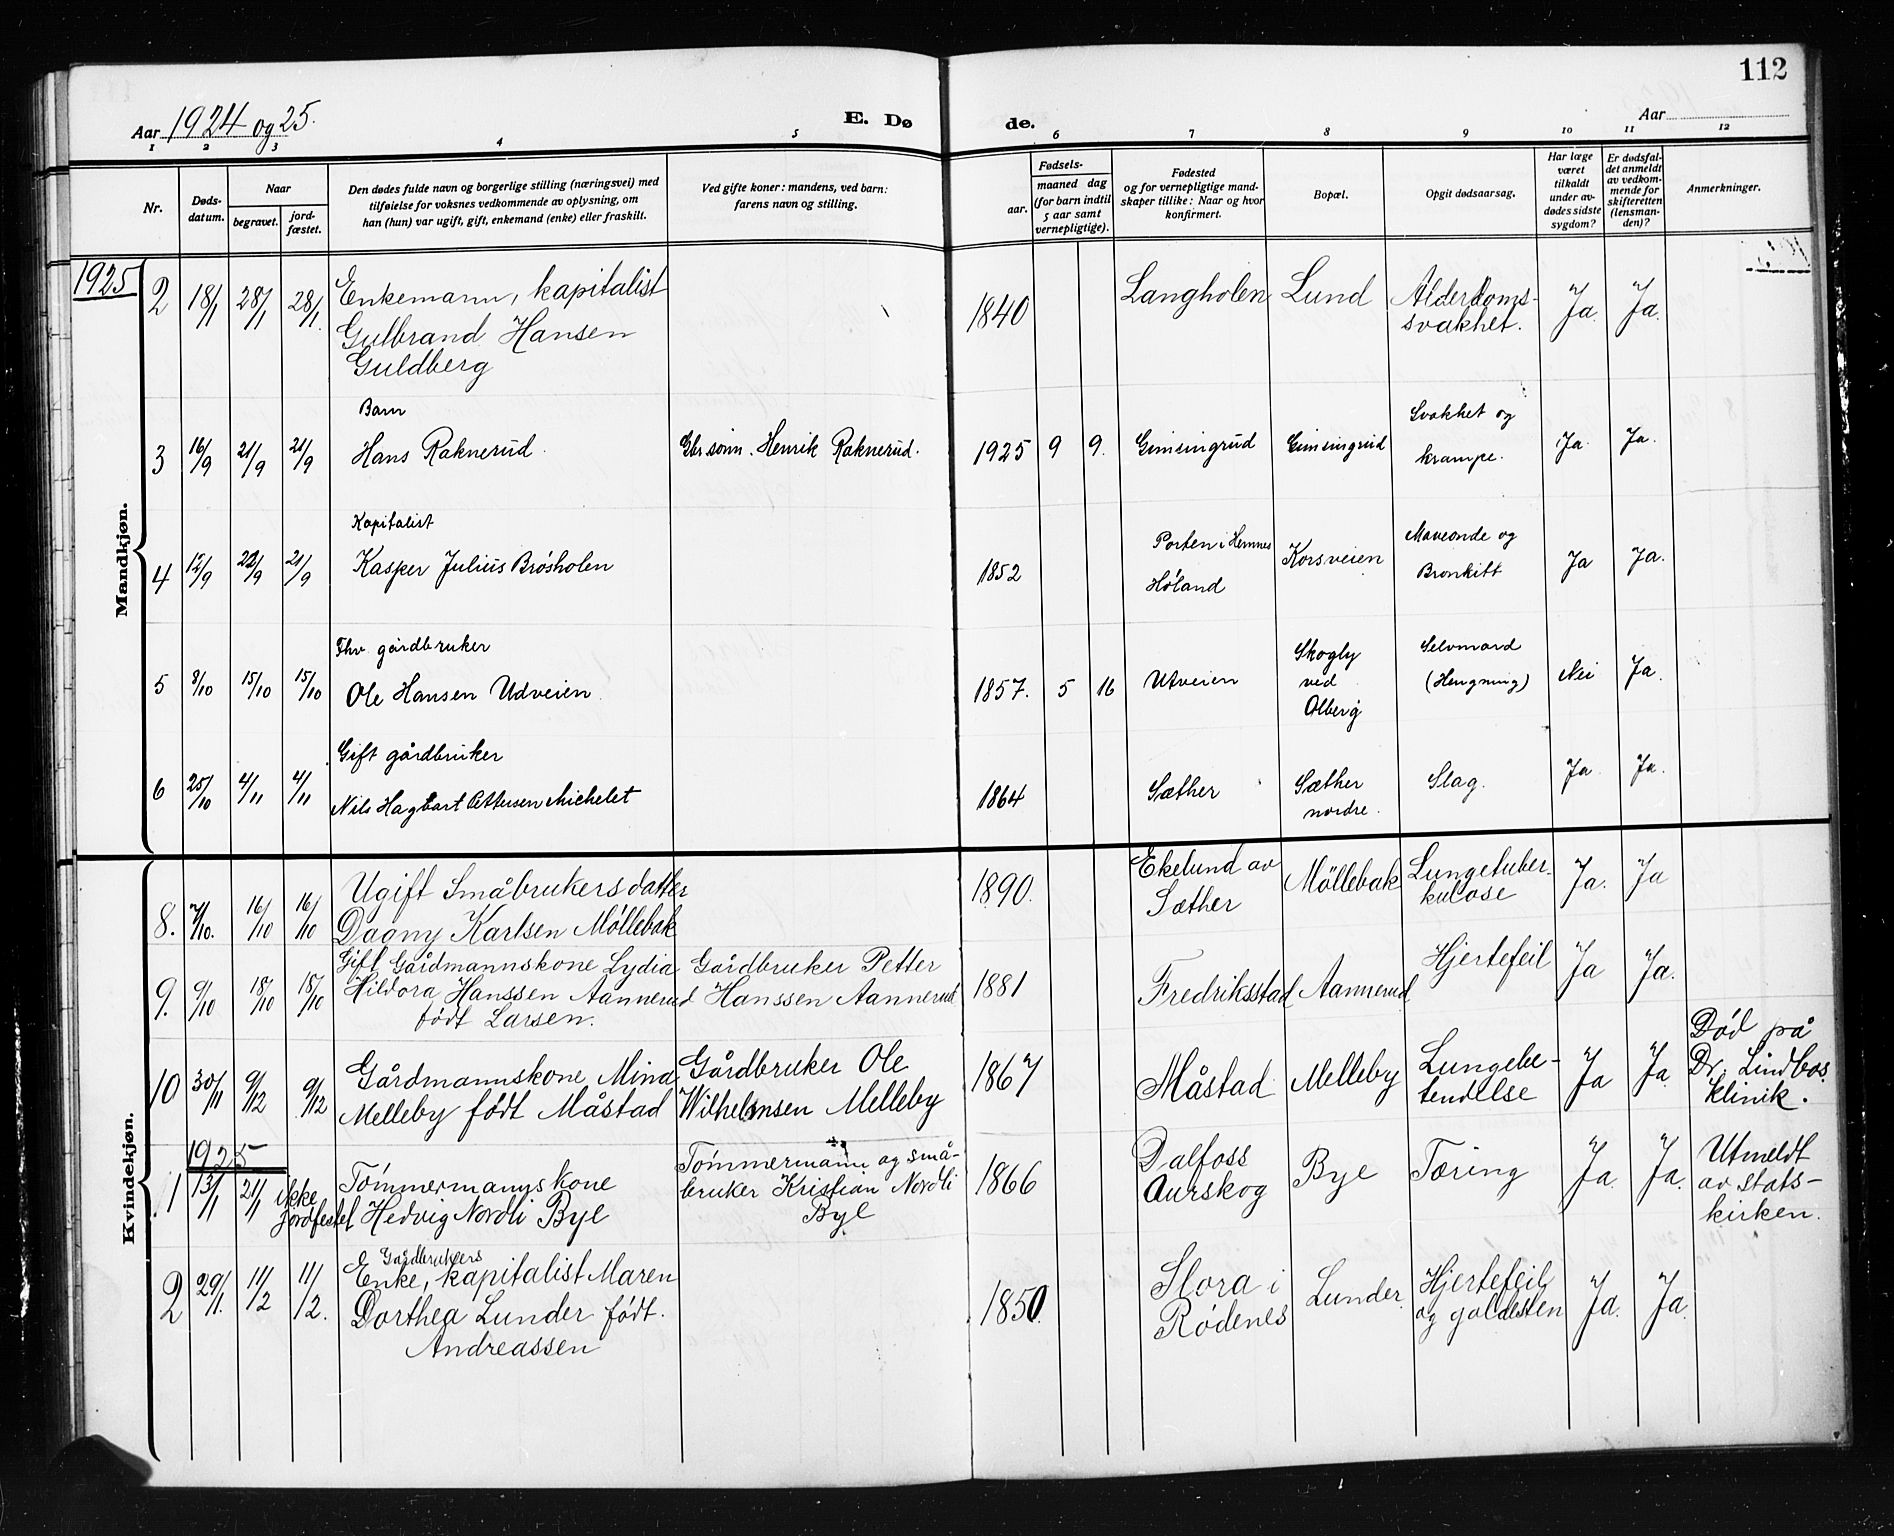 112
Aar 1924 og 25.
E. Dø
de.
Aar
1 2 3 4 5 6 7 8 9 10 11 12
Nr.
Døds-
datum.
Naar
begravet.
jord-
fæstet.
Den dødes fulde navn og borgerlige stilling (næringsvei) med
tilføielse for voksnes vedkommende av oplysning, om
han (hun) var ugift, gift, enkemand (enke) eller fraskilt.
Ved gifte koner: mandens, ved barn:
farens navn og stilling.
Fødsels-
aar.
maaned dag
(for barn indtil
5 aar samt
vernepligtige).
Fødested
og for vernepligtige mand-
skaper tillike: Naar og hvor
konfirmert.
Bopæl.
Opgit dødsaarsag.
Har læge
været
tilkaldt
under av-
dødes sidste
sygdom?
Er dødsfal-
det anmeldt
av vedkom-
mende for
skifteretten
(lensman-
den)?
Anmerkninger.
Mandkjøn.
1925
2 18/1 28/1 28/1. Enkemann, kapitalist
Gulbrand Hansen
Guldberg
1840 Langholen Lund Alderdoms-
svakhet. Ja. Ja.
Barn
3 16/9 21/9 21/9 Hans Raknerud. Gbr.sønn. Henrik Raknerud. 1925 9 9. Gimsingrud Gimsingrud Svakhet og
krampe. Ja. Ja.
Kapitalist
4 12/9 22/9 21/9 Kasper Julius Brøsholen 1852 Porten i Hemnes
Høland Korsveien Maveonde og
Bronkitt Ja Ja.
Fhv. gårdbruker
5 8/10 15/10 15/10 Ole Hansen Udveien. 1857. 5 16 Utveien Skogly
ved
Olberg Selvmord
(Hengning) Nei Ja.
Gift gårdbruker
6 25/10 4/11 4/11 Nils Hagbart Pettersen Michelet 1864 Sæther Sæther
nordre. Slag. Ja. Ja.
Kvindekjøn.
8. 7/10. 16/10 16/10 Ugift Småbrukersdatter
Dagny Karlsen Møllebak
1890. Ekelund av
Sæther Møllebak Lungetuber-
kulose Ja. Ja
9. 9/10 18/10 18/10 Gift Gårdmannskone Lydia
Hildora Hanssen Aannerud
født Larsen.
Gårdbruker Petter
Hanssen Aannerud
1881 Fredriksstad Aannerud. Hjertefeil Ja Ja.
10 30/11 9/12 9/12 Gårdmannskone Mina
Melleby født Måstad
Gårdbruker Ole
Wilhelmsen Melleby
1867 Måstad Melleby Lungebe-
tendelse Ja Ja. Død på
Dr. Lindbos
klinik.
1925
1 13/1 21/1 ikke
jordfestet Tømmermannskone
Hedvig Nordli Bye
Tømmermann og små-
bruker Kristian Nordli
Bye
1866 Dalfoss
Aurskog Bye Tæring Ja. Ja. Utmeldt
av stats-
kirken.
Gårdbrukers
2 29/1. 11/2 11/2. Enke, kapitalist Maren
Dorthea Lunder født.
Andreassen
1850. Slora i
Rødenes Lunder. Hjertefeil
og galdesten Ja. Ja.